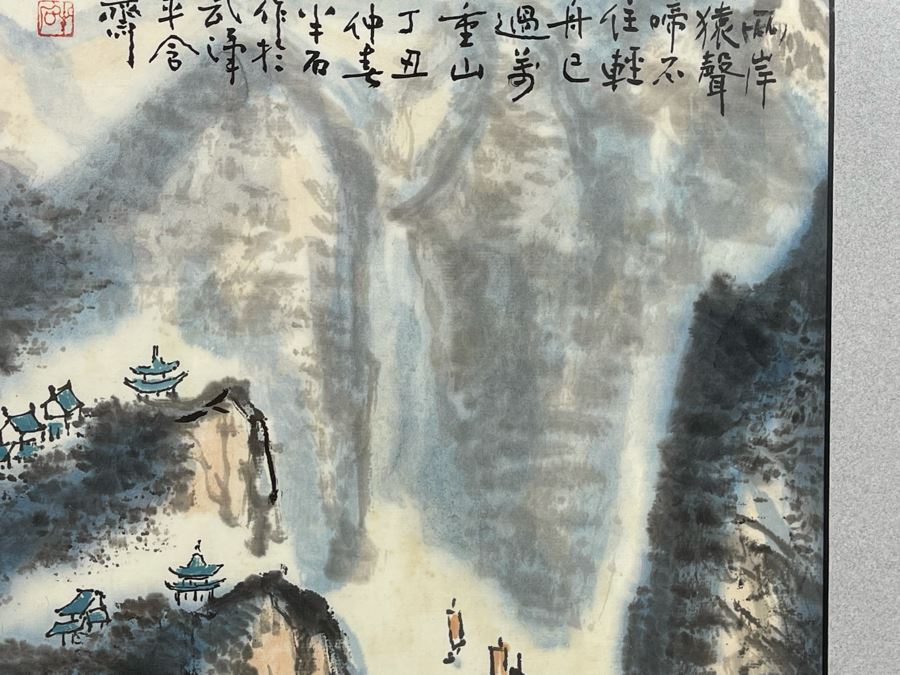 兩岸
猿聲
啼不
住輕
舟已
過萬
重山
丁丑
仲春
半石
作於
武漢
平舍
齋